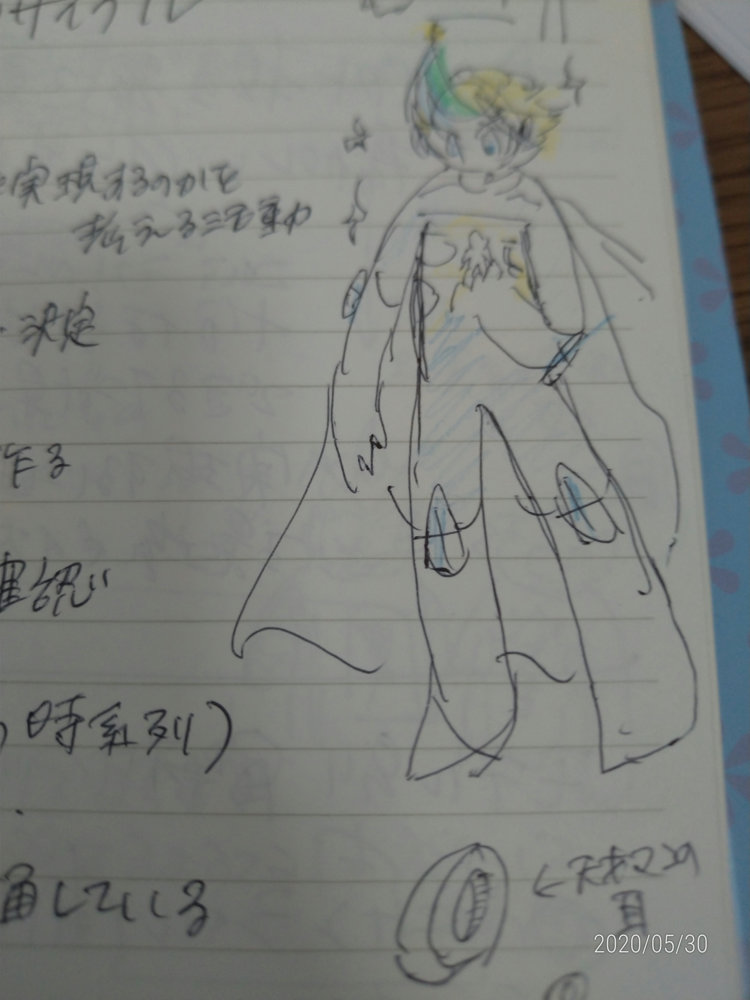 サイクル
実現するのかを
考える三重か
決定
作る
確認
時系列)
通している
←天才マンの
目
2020/05/30